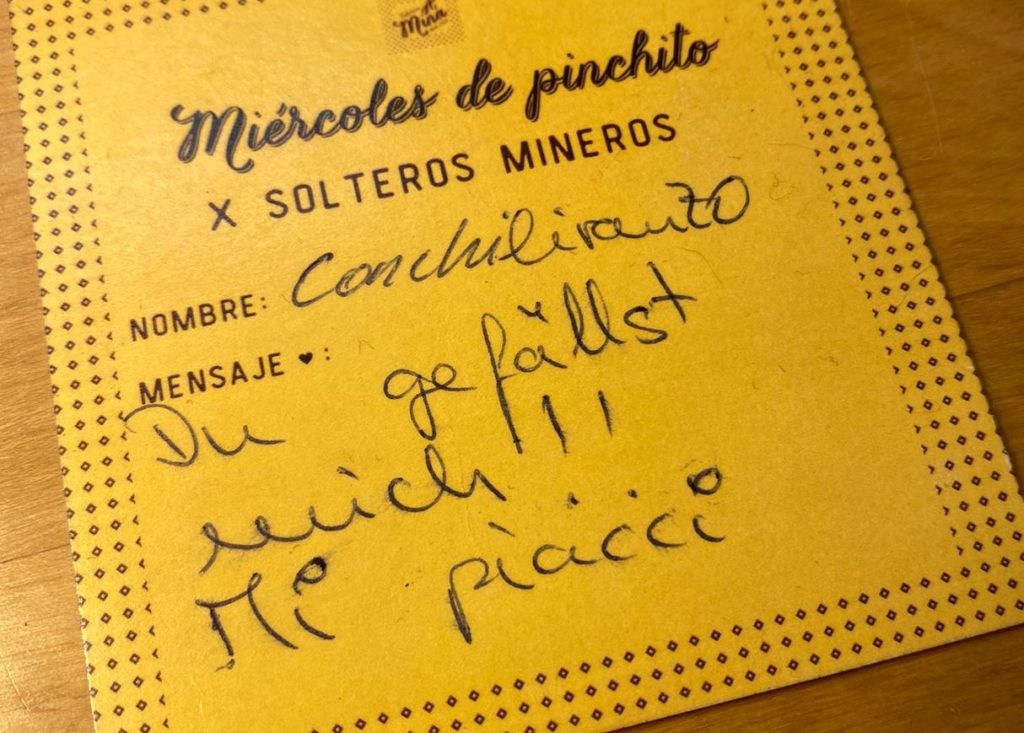 Mina
Miércoles de pinchito
X SOLTEROS MINEROS
NOMBRE: Conchiliranzo
MENSAJE ♥:
Du gefällst
mich !!
Mi piacci